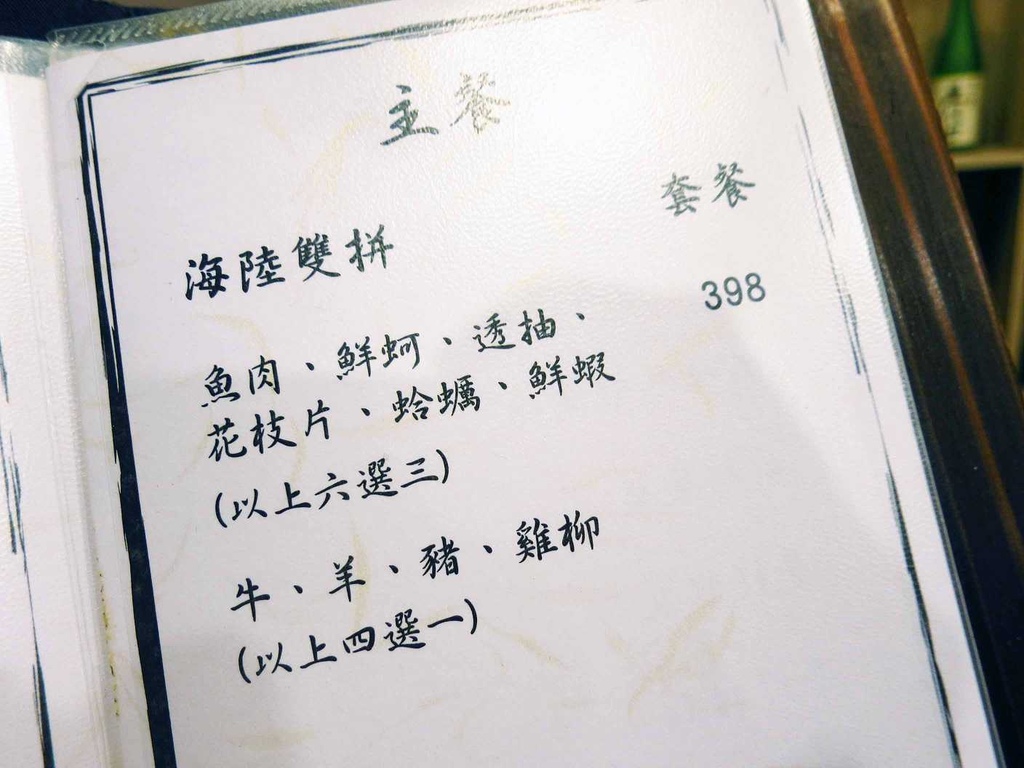 主餐
套餐
海陸雙拼
398
魚肉、鮮蚵、透抽、
花枝片、蛤蠣、鮮蝦
(以上六選三)
牛、羊、豬、雞柳
(以上四選一)